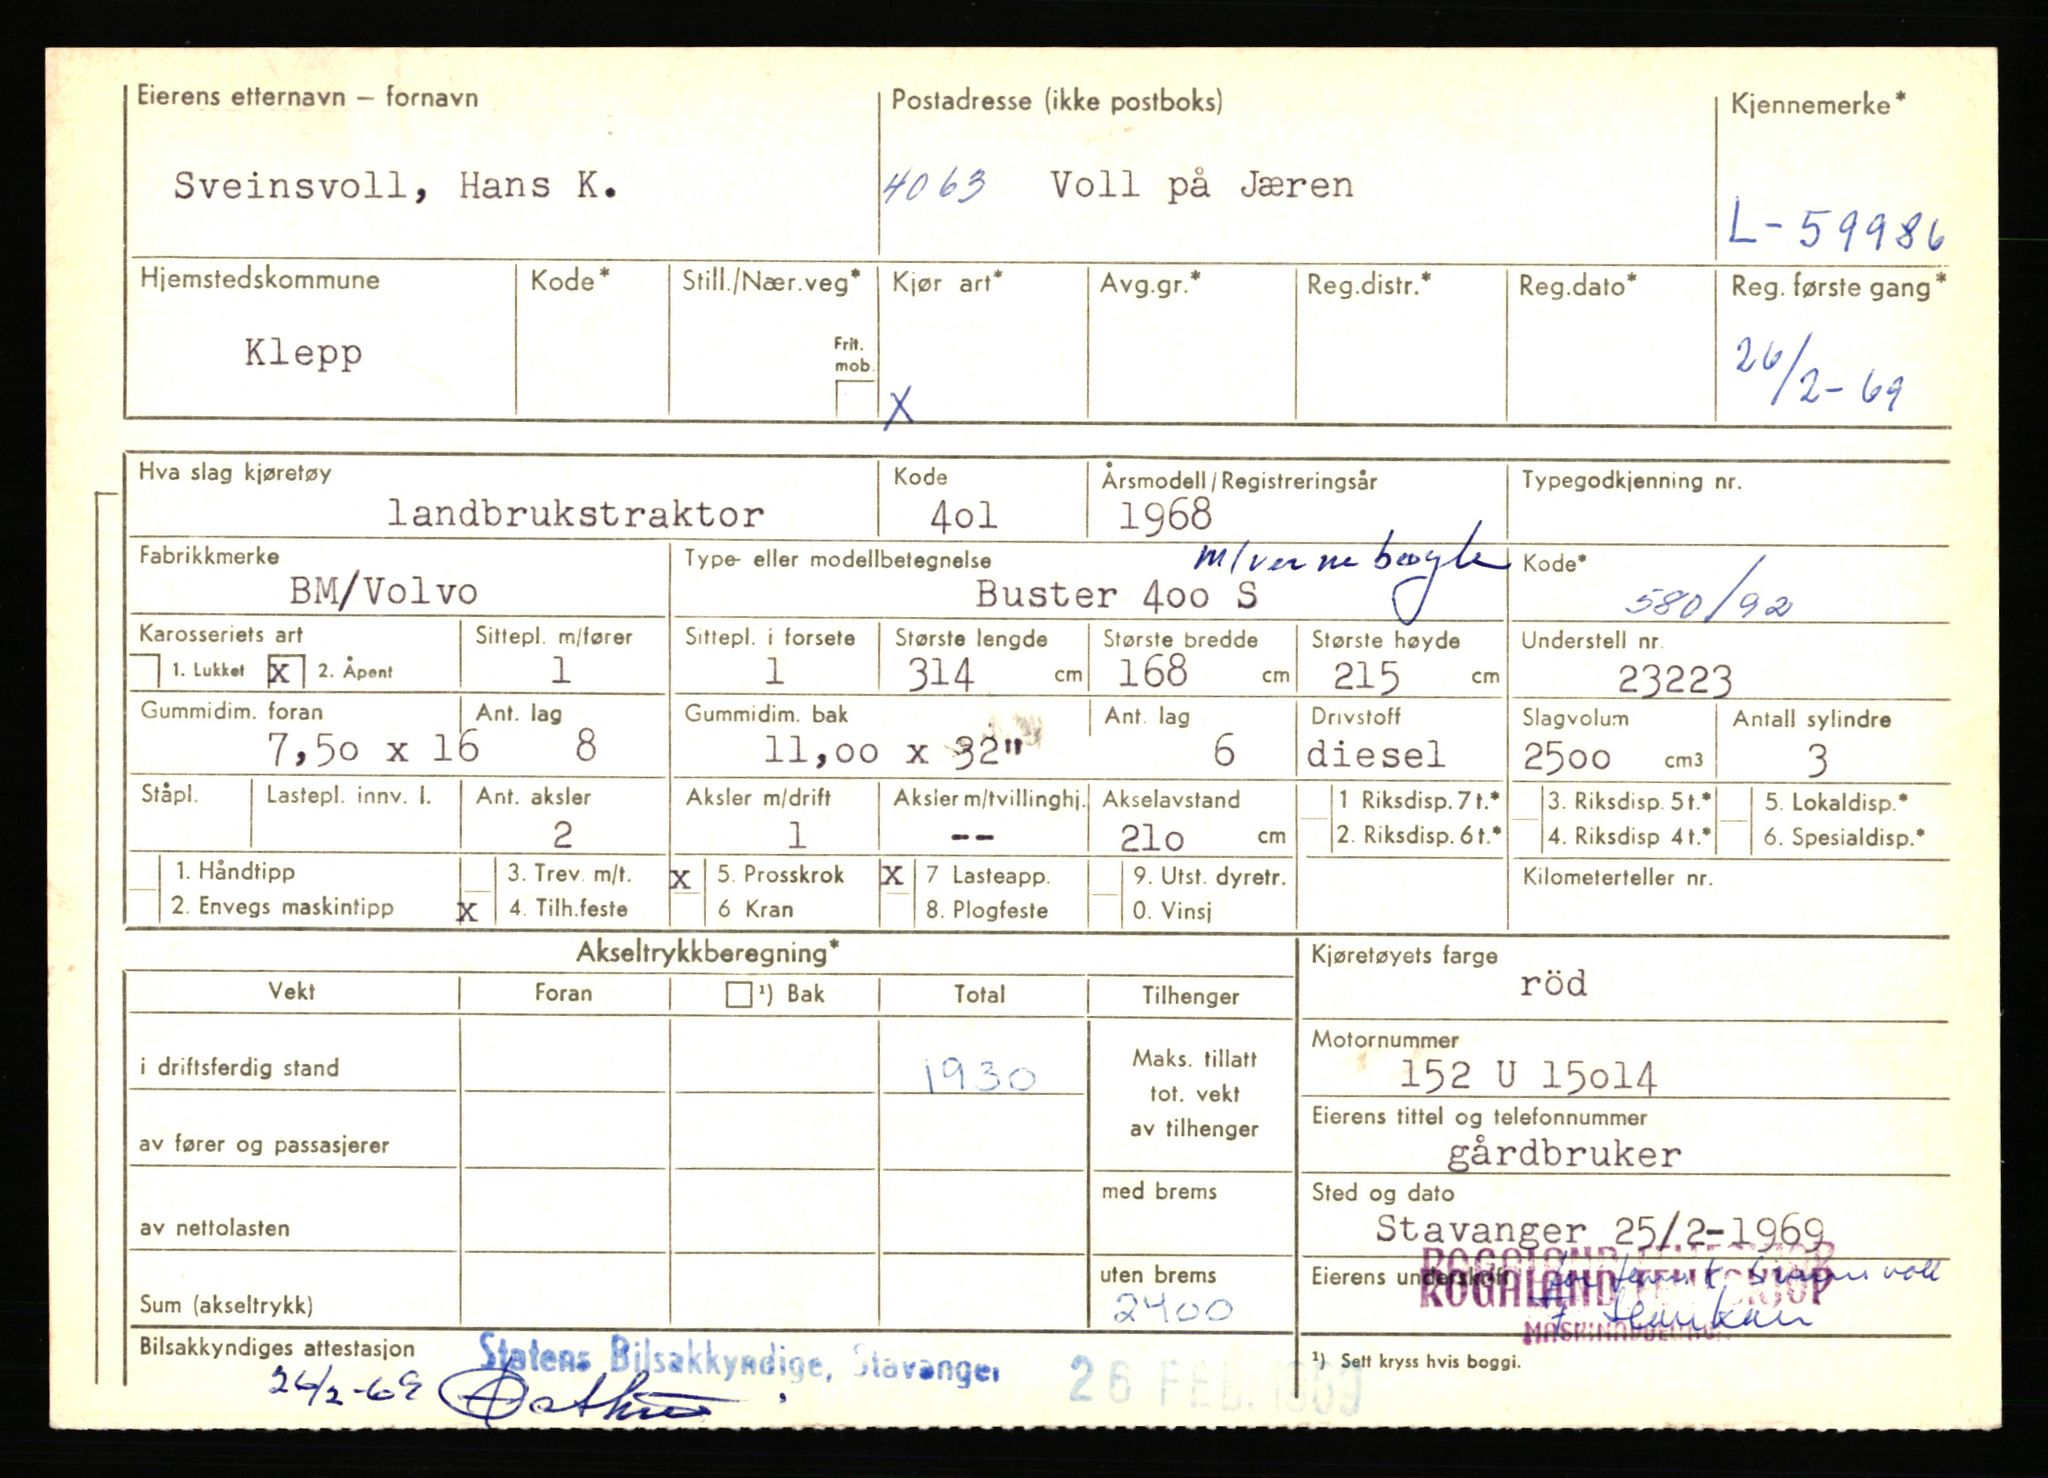 Eierens etternavn – fornavn
Postadresse (ikke postboks)
Kjennemerke*
Sveinsvoll, Hans K.
4063 Voll på Jæren
L-59986
Hjemstedskommune
Kode*
Still./Nær.veg*
Kjør art*
Avg.gr.*
Reg.distr.*
Reg.dato*
Reg. første gang*
Klepp
Frit. mob.
X
26/2-69
Hva slag kjøretøy
Kode
Årsmodell/Registreringsår
Typegodkjenning nr.
landbrukstraktor
4o1
1968
Fabrikkmerke
Type- eller modellbetegnelse
m/vernebøyle
Kode*
BM/Volvo
Buster 4oo S
580/92
Karosseriets art
Sittepl. m/fører
Sittepl. i forsete
Største lengde
Største bredde
Største høyde
Understell nr.
1. Lukket x 2. Åpent
1
1
314 cm
168 cm
215 cm
23223
Gummidim. foran
Ant. lag
Gummidim. bak
Ant. lag
Drivstoff
Slagvolum
Antall sylindre
7,5o x 16
8
11,oo x 32"
6
diesel
25oo cm3
3
Ståpl.
Lastepl. innv. l.
Ant. aksler
Aksler m/drift
Aksler m/tvillinghj.
Akselavstand
1 Riksdisp. 7 t.*
3. Riksdisp. 5 t.*
5. Lokaldisp.*
2
1
--
21o cm
2. Riksdisp. 6 t.*
4. Riksdisp 4 t.*
6. Spesialdisp.*
1. Håndtipp
3. Trev. m/t.
x 5. Prosskrok
x 7 Lasteapp.
9. Utst. dyretr.
Kilometerteller nr.
2. Envegs maskintipp
x 4. Tilh.feste
6 Kran
8. Plogfeste
0. Vinsj
Akseltrykkberegning*
Kjøretøyets farge
röd
Vekt
Foran
¹) Bak
Total
Tilhenger
Motornummer
i driftsferdig stand
1930
Maks. tillatt
tot. vekt
av tilhenger
152 U 15o14
Eierens tittel og telefonnummer
av fører og passasjerer
gårdbruker
med brems
Sted og dato
av nettolasten
Stavanger 25/2-1969
uten brems
Eierens underskrift
ROGALAND FELLESKJØP
Sum (akseltrykk)
2400
MASKINAVDELINGEN
Bilsakkyndiges attestasjon
Statens Bilsakkyndige, Stavanger
¹) Sett kryss hvis boggi.
26/2-69
26 FEB. 1969